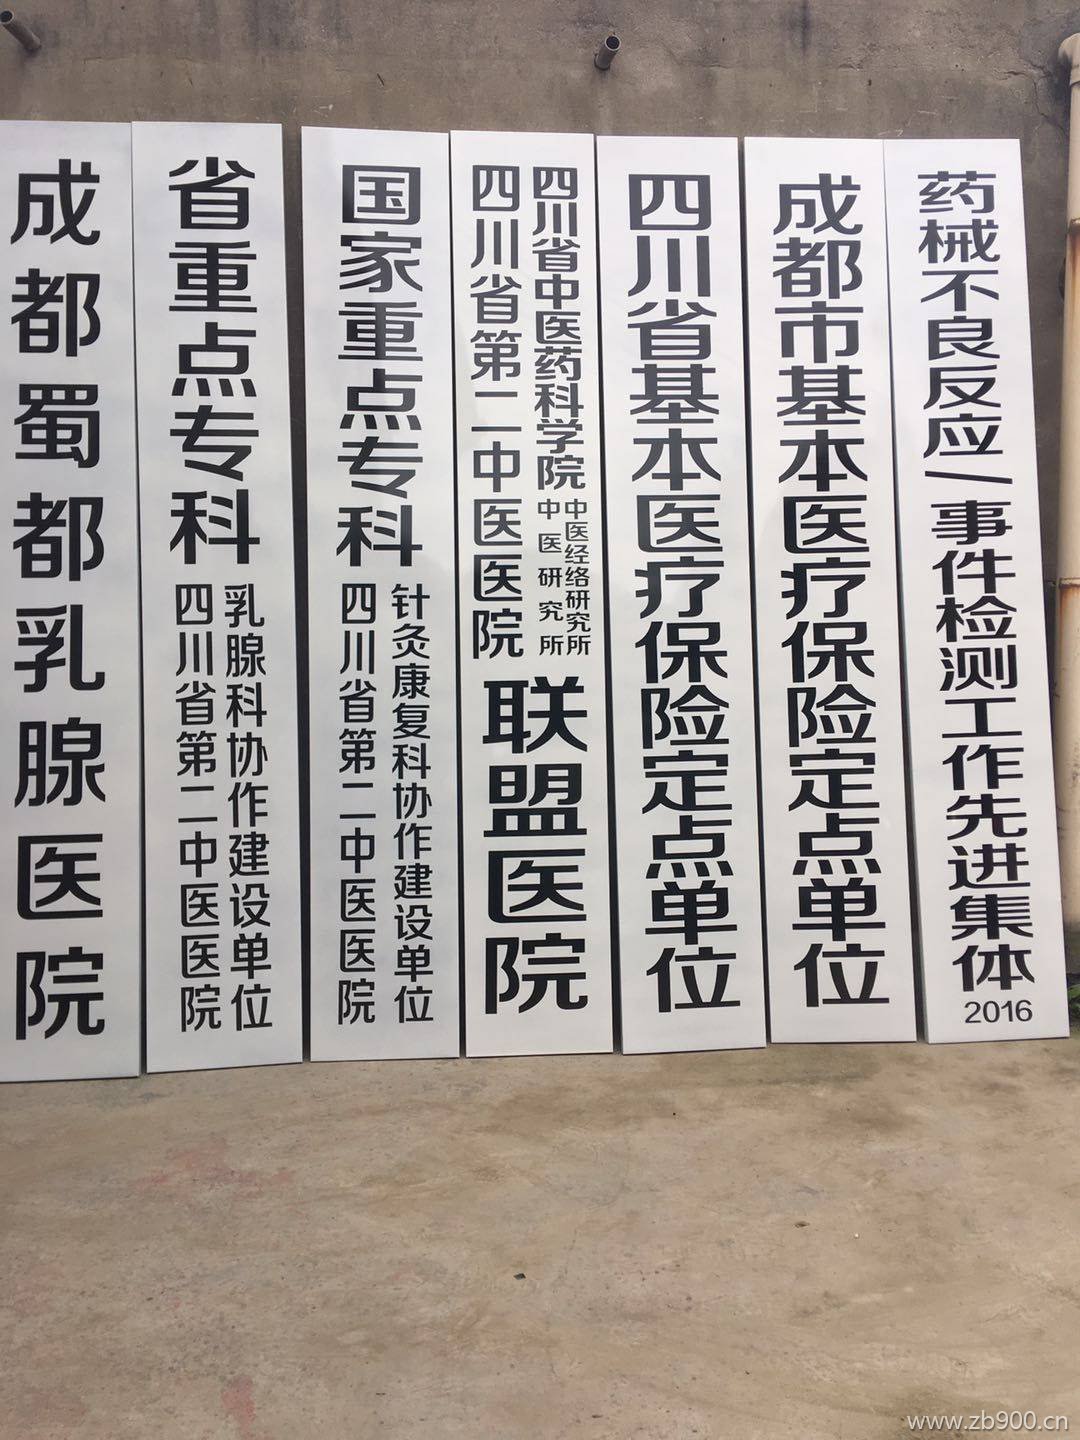 成都蜀都乳腺医院
省重点专科
乳腺科协作建设单位
四川省第二中医医院
国家重点专科
针灸康复科协作建设单位
四川省第二中医医院
四川省中医药科学院
中医经络研究所
中医研究所
四川省第二中医医院
联盟医院
四川省基本医疗保险定点单位
成都市基本医疗保险定点单位
药械不良反应/事件检测工作先进集体
2016
www.zb900.cn